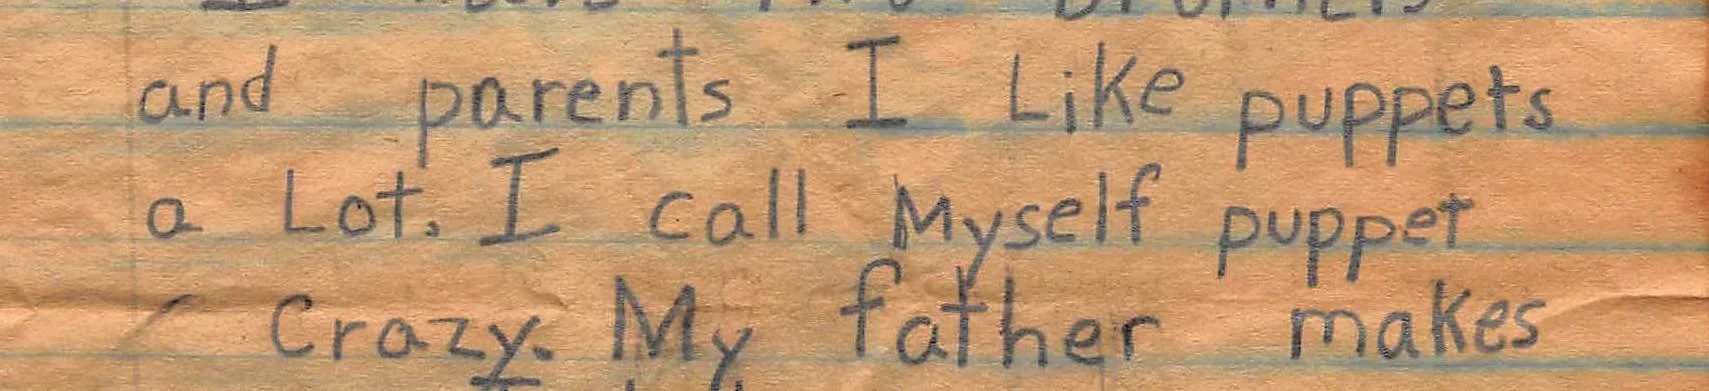 and parents I Like puppets
a Lot. I call Myself puppet
Crazy. My father makes